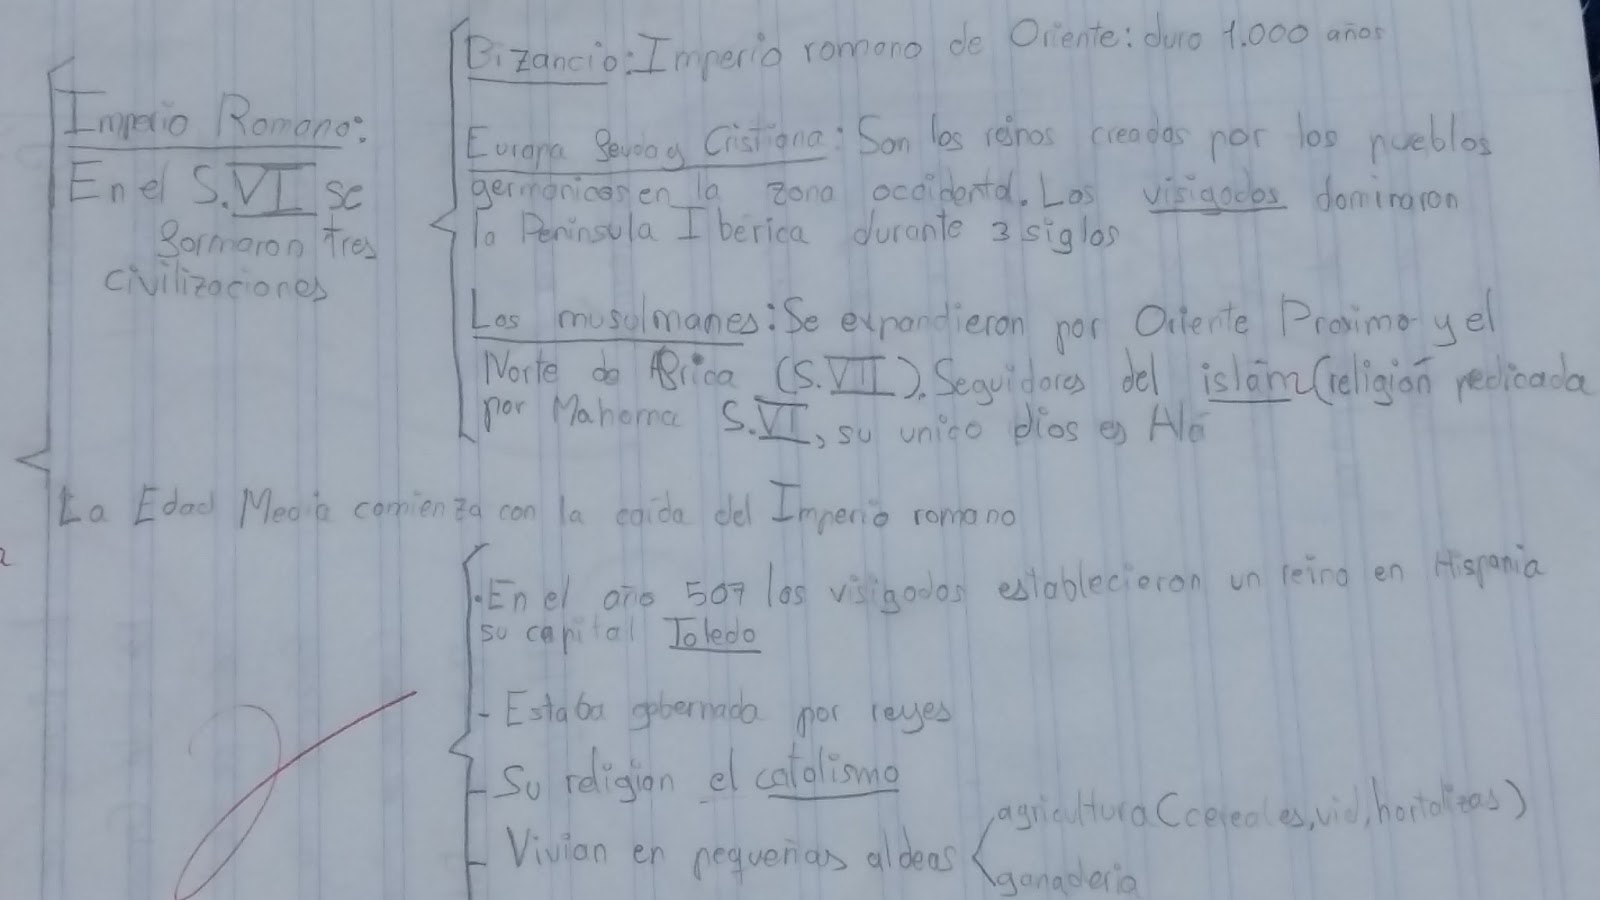 Imperio Romano:
En el S.VI se
formaron tres
civilizaciones
Bizancio: Imperio romano de Oriente: duro 1.000 años
Europa Cristiana: Son los reinos creados por los pueblos
germanicos en la zona occidental. Los visigodos dominaron
la Peninsula Iberica durante 3 siglos
Los musulmanes: Se expandieron por Oriente Proximo y el
Norte de Africa (S.VII). Seguidores del islám (religión predicada
por Mahoma S.VI, su unico dios es Alá
La Edad Media comienza con la caida del Imperio romano
.En el año 507 los visigodos establecieron un reino en Hispania
su capital Toledo
- Estaba gobernada por reyes
- Su religion el catolismo
- Vivian en pequeñas aldeas
agricultura (cereales, vid, hortalizas)
ganaderia